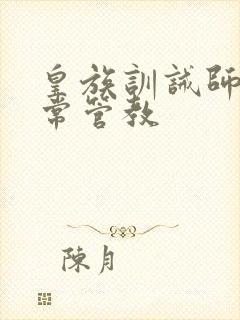 皇族訓誡師
常管教
陳月